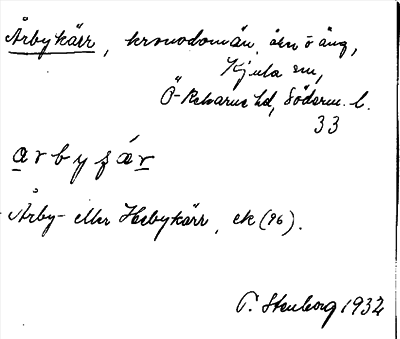 Årbykärr, kronodomän, åkr o äng,
Kjula sn,
Ö-Rekarne hd, Söderm. l.
33
arbyʒár
Årby- eller Husbykärr, ek (96).
T. Stenborg 1932